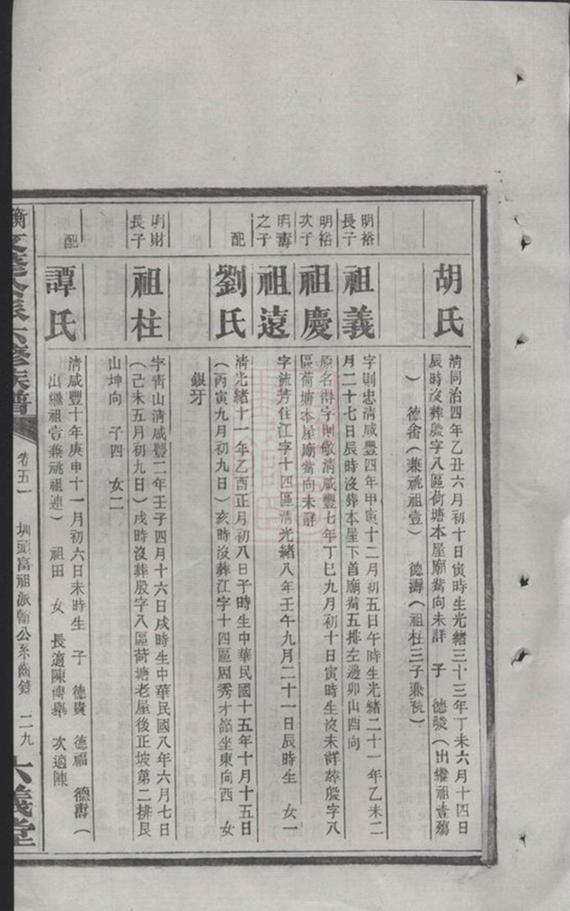 胡氏
清同治四年乙丑六月初十日寅時生光緒三十三年丁未六月十四日
辰時沒葬殷字八區荷塘本屋廟嘴向未詳 子 德駿（出繼祖壹鷄
） 德畬（兼祧祖壹） 德濤（祖柱三子兼祧）
明裕
長子
祖義
字則忠清咸豐四年甲寅十二月初五日午時生光緒二十一年乙未二
月二十七日辰時沒葬本屋下首廟嘴五排左邊卯山酉向
明裕
次子
祖慶
原名得字則敬清咸豐七年丁巳九月初十日寅時生沒未詳葬殷字八
區荷塘本屋廟嘴向未詳
明壽
之子
祖遠
字流芳住江字十四區清光緒八年壬午九月二十一日辰時生 女一
配
劉氏
清光緒十一年乙酉正月初八日子時生中華民國十五年十月十五日
（丙寅九月初九日）亥時沒葬江字十四區周秀才 坐東向西 女
銀牙
明財
長子
祖柱
字青山清咸豐二年壬子四月十六日戌時生中華民國八年六月七日
（己未五月初九日）戌時沒葬殷字八區荷塘老屋後正坡第二排艮
山坤向 子四 女二
配
譚氏
清咸豐十年庚申十一月初六日未時生 子 德貴 德福 德壽（
出繼祖壹兼祧祖連） 祖田 女 長適陳 次適陳
衡 六修族譜
卷五一
圳頭富祖派 公系齒錄
二九
六義堂